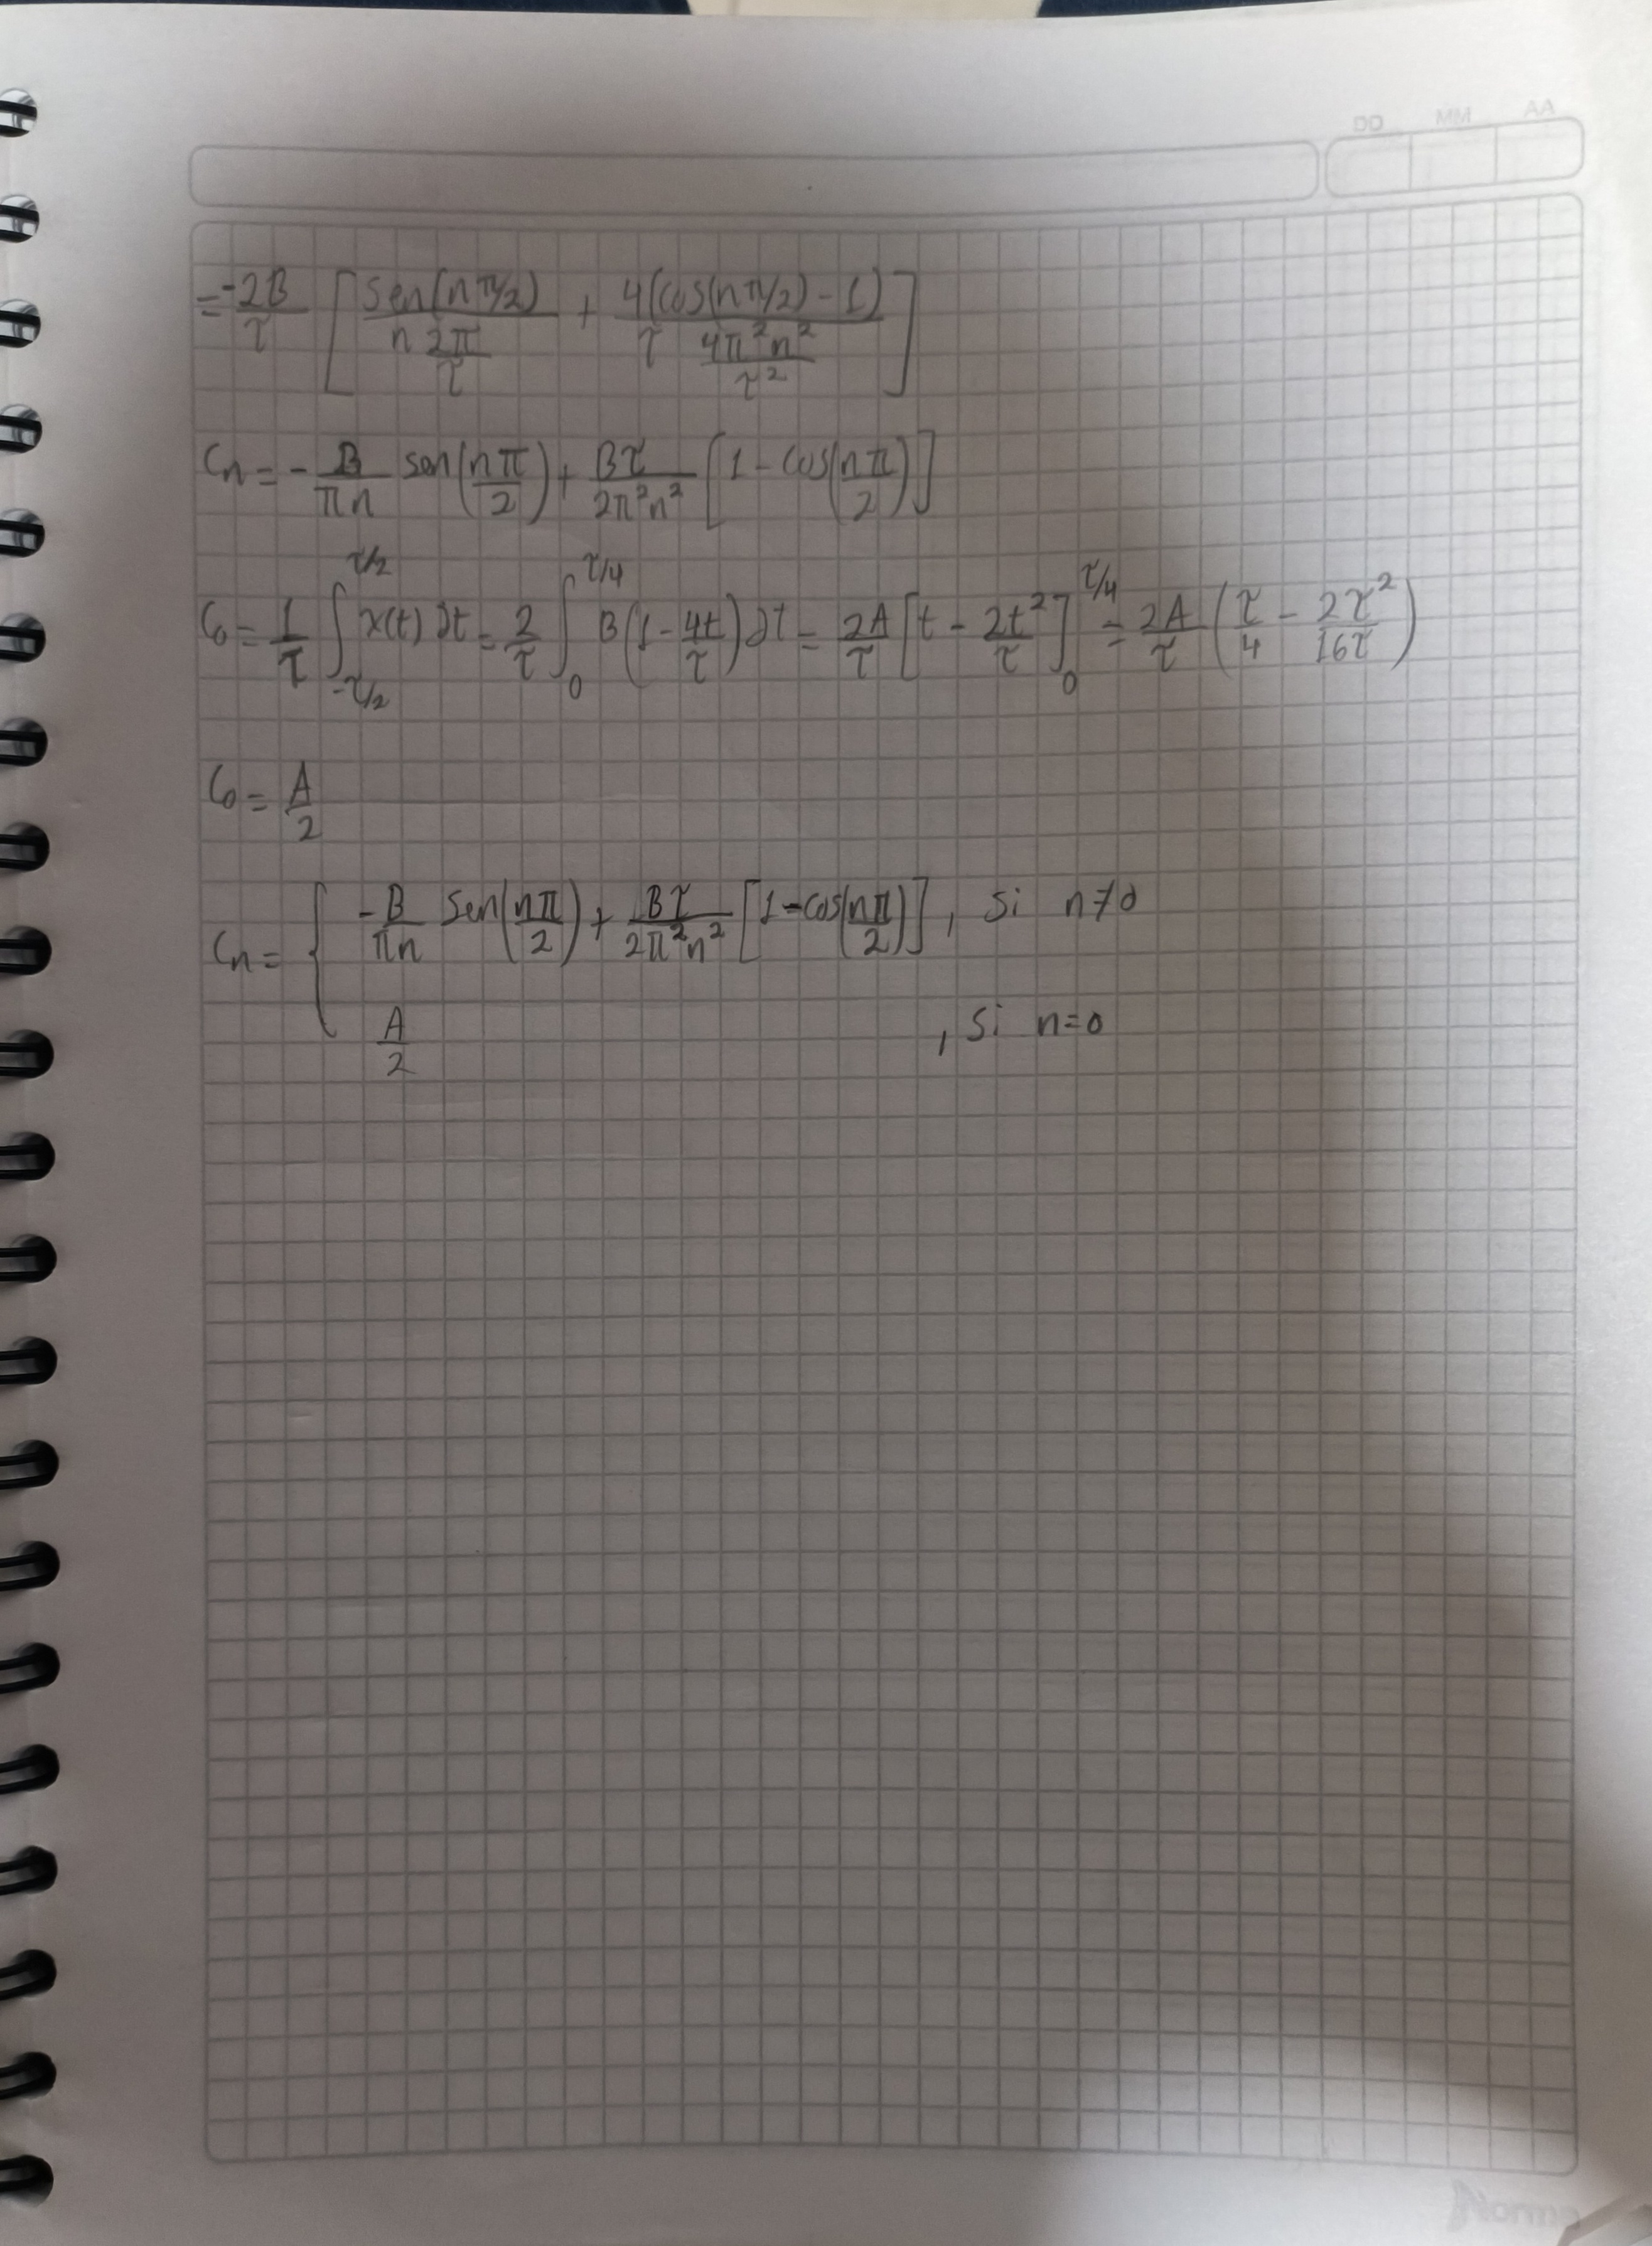 DD MM AA
= -2B/τ [ sen(nπ/2) / (n 2π/τ) + 4(cos(nπ/2) - 1) / (τ 4π²n²/τ²) ]
Cn = - B/πn sen(nπ/2) + Bτ/2π²n² [1 - cos(nπ/2)]
C0 = 1/τ ∫_{-τ/2}^{τ/2} x(t) dt = 2/τ ∫_0^{τ/4} B(1 - 4t/τ) dt = 2A/τ [t - 2t²/τ]_0^{τ/4} = 2A/τ (τ/4 - 2τ²/16τ)
C0 = A/2
Cn = { -B/πn sen(nπ/2) + Bτ/2π²n² [1 - cos(nπ/2)], si n≠0
A/2 , si n=0
Norma